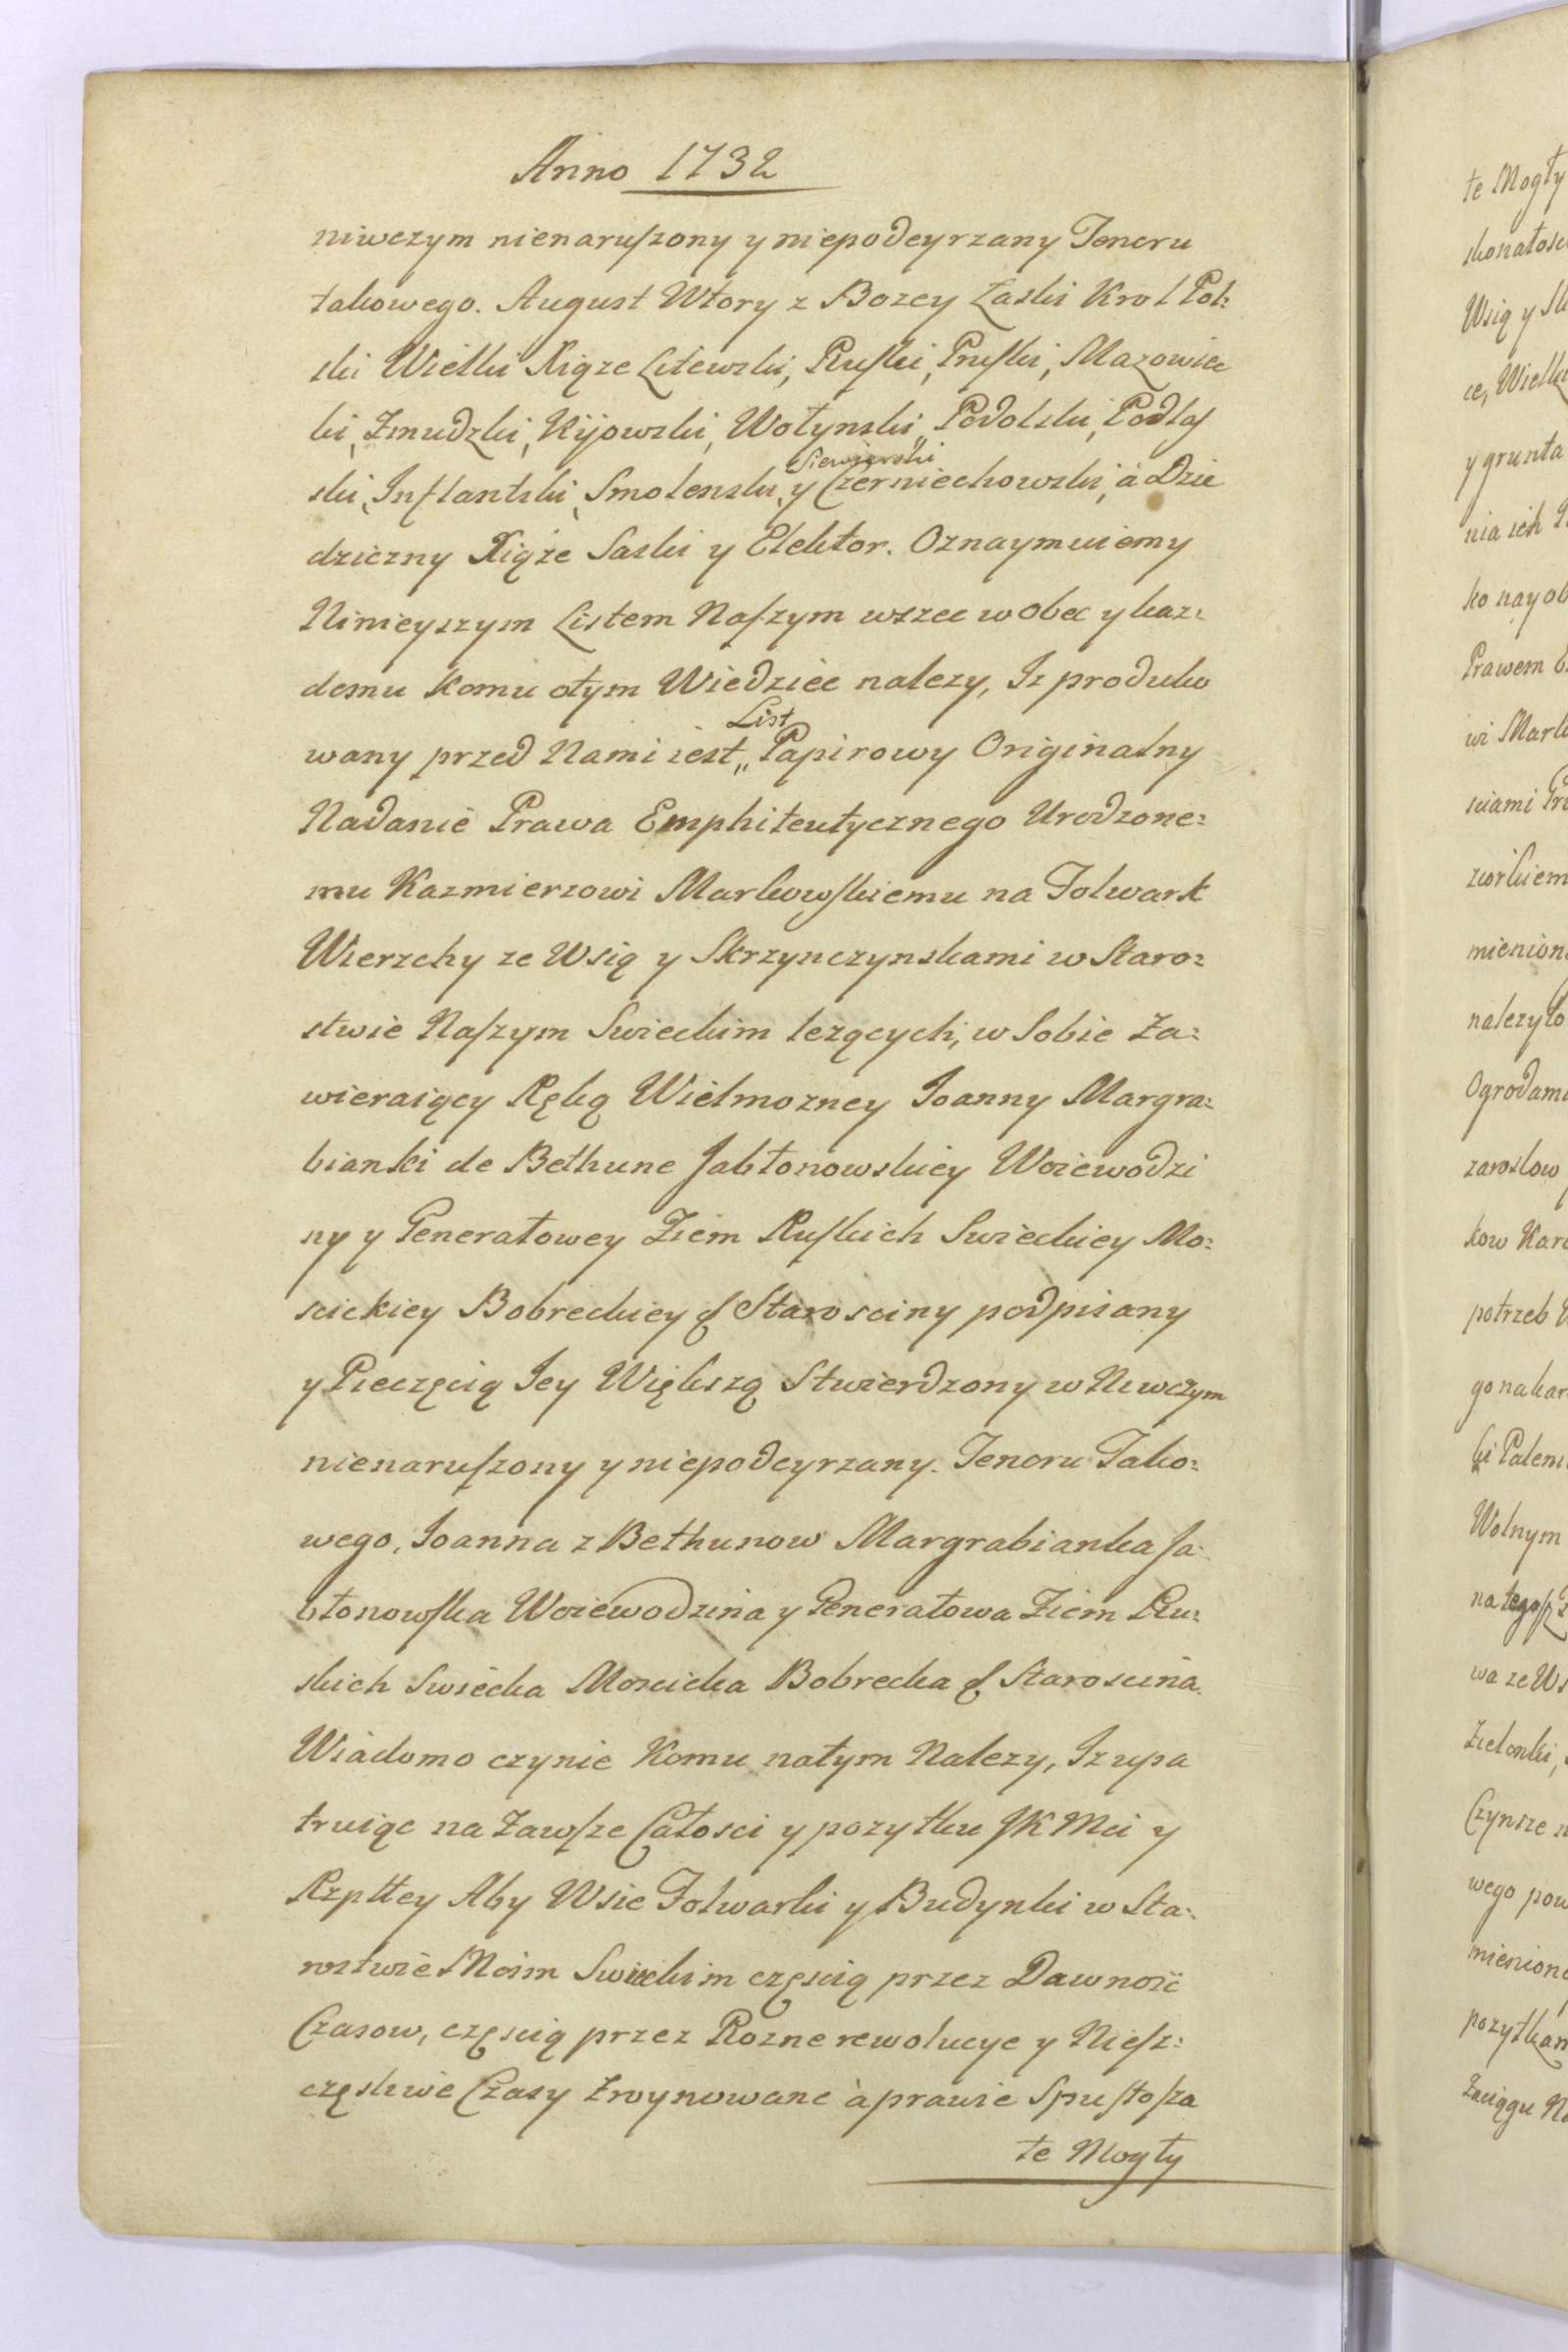 Anno 1732
niwczym nienaruszony y niepodeyrzany Tenoru
takowego. August Wtory z Bozey Łaski Krol Pol:
ski Wielki Xiąze Litewski, Ruski, Pruski, Mazowiec
ki, Zmudzki, Kijowski, Wołynski, Podolski, Podlas
Siewierski
ski, Inflantski, Smolenski, y Czerniechowski, á Dzie
dziczny Xiąże Saski y Elektor. Oznaymuiemy
Ninieyszym Listem Naszym wszec wobec y kaz:
demu komu otym Wiedziec nalezy, Iz produko
List
wany przed Nami iest „ Papirowy Originalny
Nadanie Prawa Emphiteutycznego Urodzone:
mu Kazmierzowi Markowskiemu na Folwark
Wierzchy ze Wsią y Skrzynczynskami w Staro:
stwie Naszym Swieckim lezących, w Sobie Za:
wieraiący Ręką Wielmozney Joanny Margra:
bianki de Bethune Jabłonowskiey Woiewodzi
ny y Generałowey Ziem Ruskich Swieckiey Mo:
scickiey Bobreckiey & Starosciny podpisany
y Pieczęcią Jey Większą Stwierdzony w Niwczym
nienaruszony y niepodeyrzany. Tenoru Tako:
wego, Joanna z Bethunow Margrabianka Ja:
błonowska Woiewodzina y Generałowa Ziem Ru:
skich Swiecka Moscicka Bobrecka & Staroscina.
Wiadomo czynie Komu natym Nalezy, Iz upa
truiąc na Zawsze Całosci y pozytku JK Mci y
Rzpltey Aby Wsie Folwarki y Budynki w Sta:
rostwie Moim Swieckim częscią przez Dawnosc
Czasow, częscią przez Rozne rewolucye y Niesz:
częsliwe Czasy Zruynowane à prawie Spustosza
łe Mogły
te Mogły
Wsią y
ce,
y grunta
nia ich
Prawem
sciami
nalezyło
Ogrodami
potrzeb
Wolnym
Czynsze
wego
Zaciągu